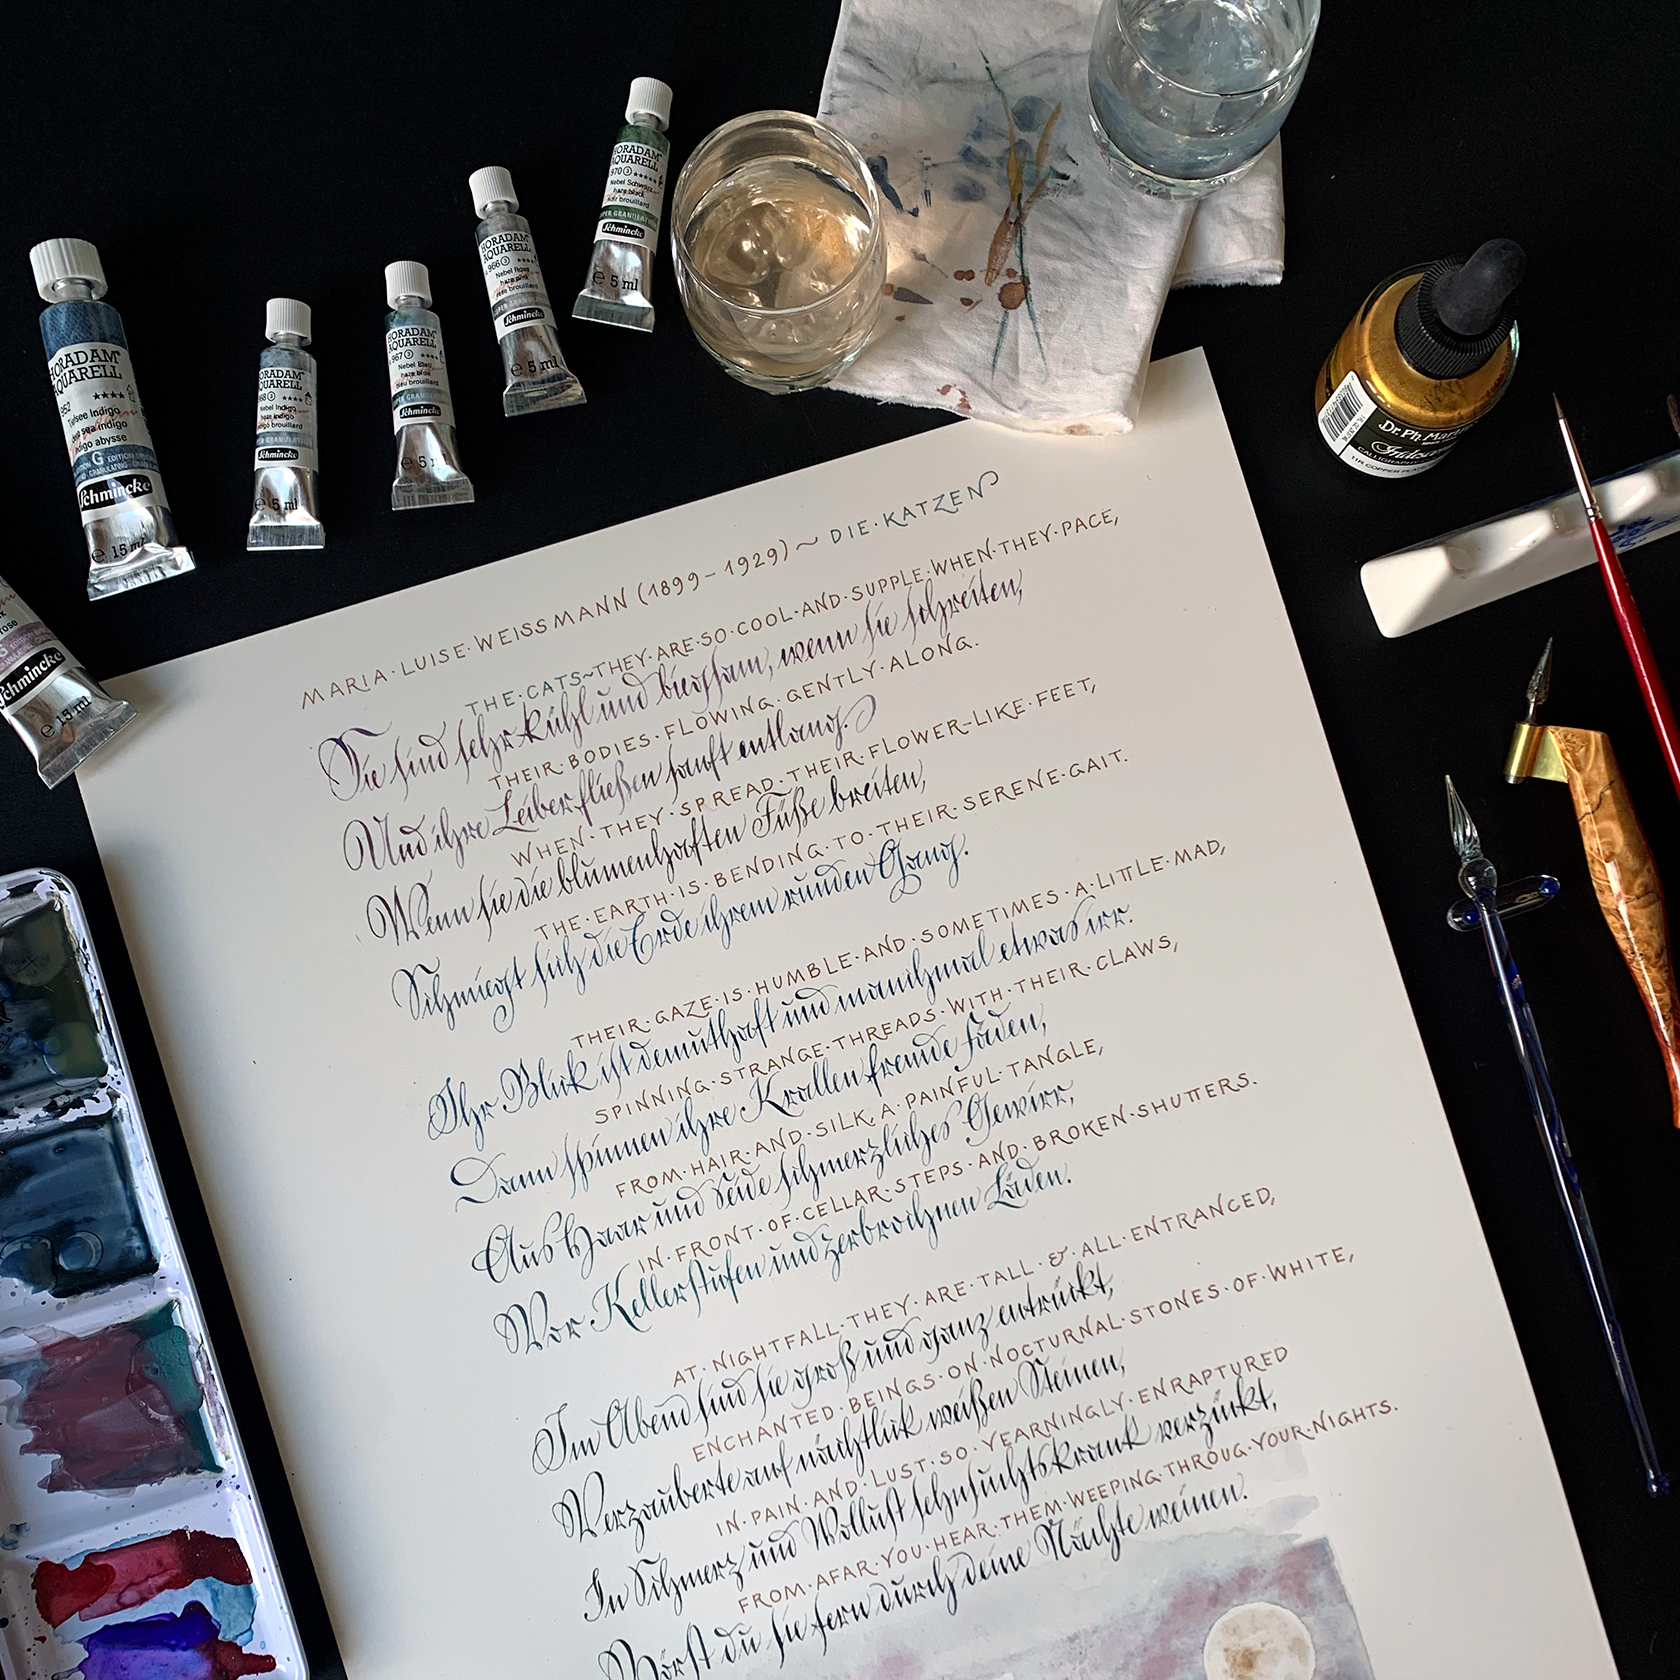 HORADAM
AQUARELL
970
Nebel Schwarz
haze black
noir brouillard
SUPER GRANULATING
Schmincke
e 5 ml
HORADAM
AQUARELL
966
Nebel Rosa
haze pink
rose brouillard
Schmincke
e 5 ml
HORADAM
AQUARELL
967
Nebel Blau
haze blue
bleu brouillard
SUPER GRANULATING
Schmincke
e 5 ml
HORADAM
AQUARELL
968
Nebel Indigo
haze indigo
indigo brouillard
Schmincke
e 5 ml
HORADAM
AQUARELL
952
Tiefsee Indigo
deep sea indigo
indigo abysse
Schmincke
e 15 ml
Schmincke
e 15 ml
Dr. Ph. Martin's
Iridescent
CALLIGRAPHY
11R COPPER PLATE
MARIA·LUISE·WEISSMANN (1899–1929) ~ DIE·KATZEN
THE·CATS~THEY·ARE·SO·COOL·AND·SUPPLE·WHEN·THEY·PACE,
Sie sind sehr kühl und biegsam, wenn sie schreiten,
THEIR·BODIES·FLOWING·GENTLY·ALONG.
Und ihre Leiber fließen sanft entlang.
WHEN·THEY·SPREAD·THEIR·FLOWER-LIKE·FEET,
Wenn sie die blumenhaften Füße breiten,
THE·EARTH·IS·BENDING·TO·THEIR·SERENE·GAIT.
Schmiegt sich die Erde ihrem runden Gang.
THEIR·GAZE·IS·HUMBLE·AND·SOMETIMES·A·LITTLE·MAD,
Ihr Blick ist demuthaft und manchmal etwas irr.
SPINNING·STRANGE·THREADS·WITH·THEIR·CLAWS,
Dann spinnen ihre Krallen fremde Fäden,
FROM·HAIR·AND·SILK, A·PAINFUL·TANGLE,
Aus Haar und Seide schmerzliches Gewirr,
IN·FRONT·OF·CELLAR·STEPS·AND·BROKEN·SHUTTERS.
Vor Kellerstufen und zerbrochnen Läden.
AT·NIGHTFALL·THEY·ARE·TALL·&·ALL·ENTRANCED,
Im Abend sind sie groß und ganz entrückt,
ENCHANTED·BEINGS·ON·NOCTURNAL·STONES·OF·WHITE,
Verzauberte auf nächtlich weißen Steinen,
IN·PAIN·AND·LUST·SO·YEARNINGLY·ENRAPTURED
In Schmerz und Wollust sehnsuchtskrank verzückt,
FROM·AFAR·YOU·HEAR·THEM·WEEPING·THROUG·YOUR·NIGHTS.
Hörst du sie fern durch deine Nächte weinen.